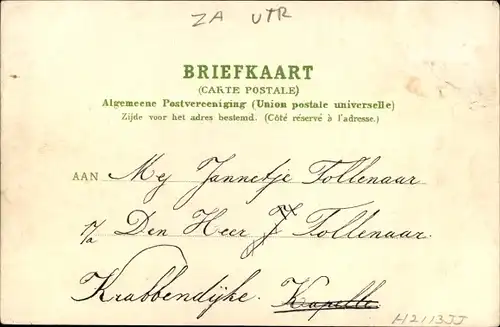 ZA UTR
BRIEFKAART
(CARTE POSTALE)
Algemeene Postvereeniging (Union postale universelle)
Zijde voor het adres bestemd. (Côté réservé à l'adresse.)
AAN Mej Jannetje Tollenaar
p/a Den Heer J Tollenaar.
Krabbendijke. Kapelle
H2113JJ